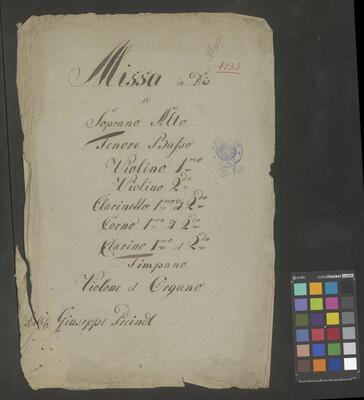 Missa in Dis
4733
a
Soprano Alto
Tenore Basso
Violino 1mo
Violino 2do
Clarinetto 1mo et 2do
Corno 1mo et 2do
Clarino 1mo et 2do
Timpano
Violone et Organo
Giuseppe Preindl